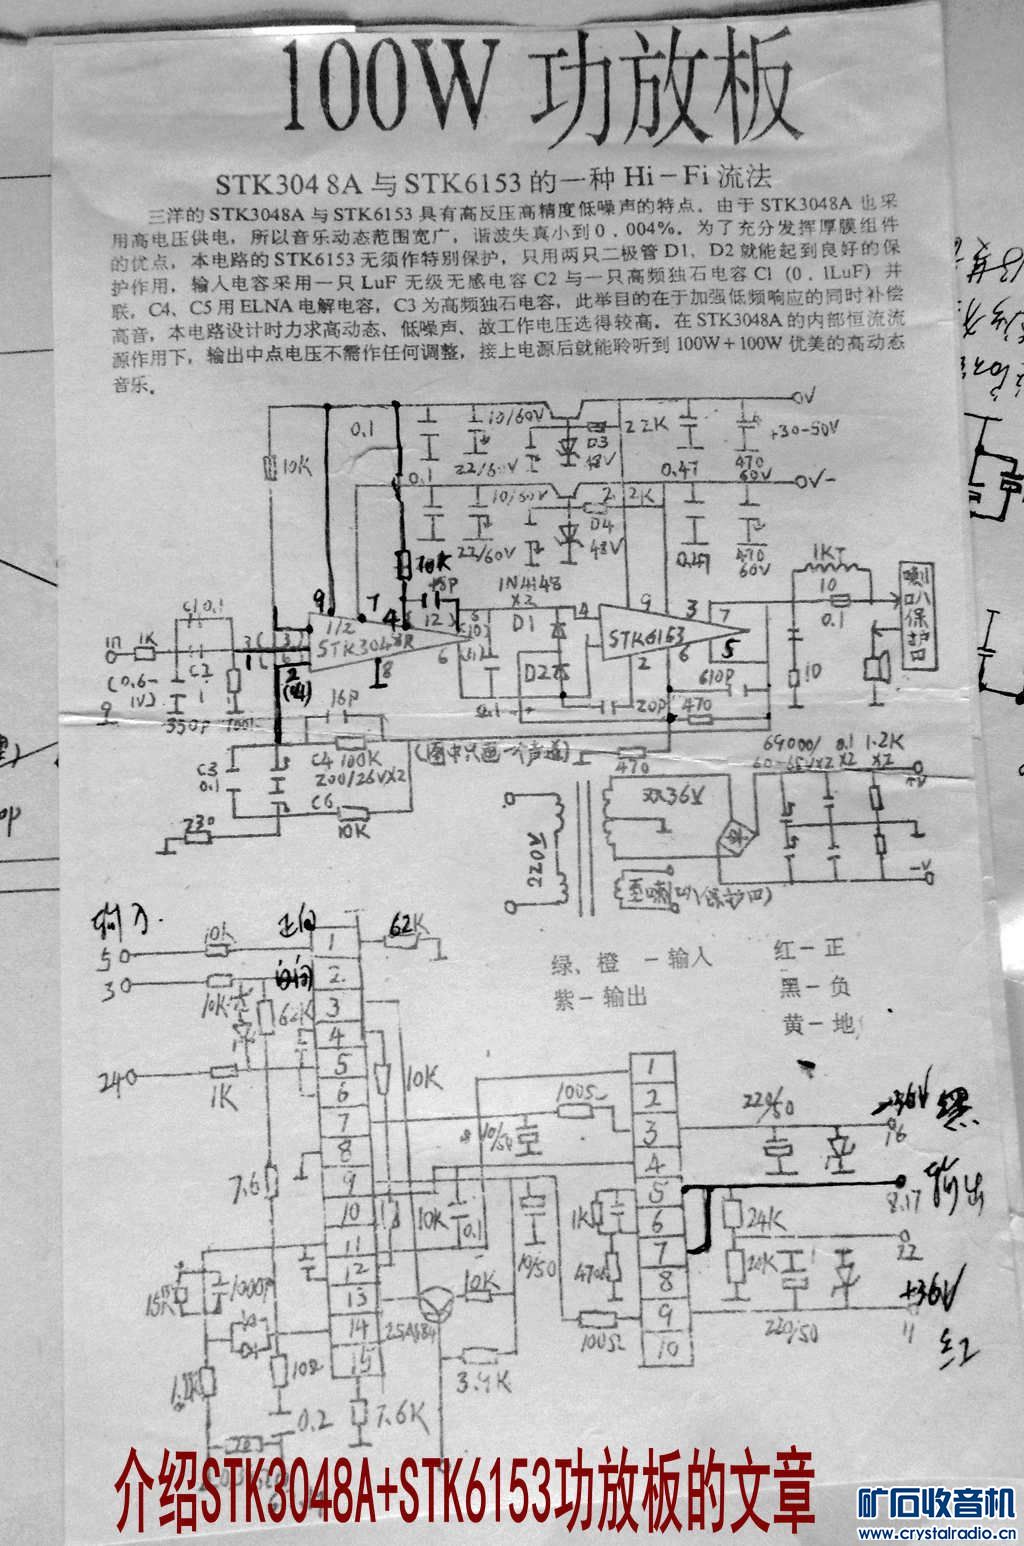 100W 功放板
STK3048A 与 STK6153 的一种 Hi-Fi 流法
三洋的 STK3048A 与 STK6153 具有高反压高精度低噪声的特点。由于 STK3048A 也采
用高电压供电，所以音乐动态范围宽广，谐波失真小到 0.004%。为了充分发挥厚膜组件
的优点，本电路的 STK6153 无须作特别保护，只用两只二极管 D1、D2 就能起到良好的保
护作用，输入电容采用一只 LuF 无级无感电容 C2 与一只高频独石电容 Cl (0.lLuF) 并
联，C4、C5 用 ELNA 电解电容，C3 为高频独石电容，此举目的在于加强低频响应的同时补偿
高音，本电路设计时力求高动态、低噪声、故工作电压选得较高。在 STK3048A 的内部恒流流
源作用下，输出中点电压不需作任何调整，接上电源后就能聆听到 100W+100W 优美的高动态
音乐。
0.1
10/60V
D3
48V
22K
0V
+30-50V
10K
0.1
22/60V
0.47
470
60V
10/60V
2.2K
0V-
22/60V
D4
48V
0.47
470
60V
10K
15P
1N4148
X2
10
0.1
喇叭保护口
9
7
4
D1
4
9
3
7
1K
1/2
STK3048A
STK6153
5
D2
8
6
2
6
(0.6-
1V)
C2
1
350P
16P
610P
20P
470
10
C3
0.1
C4 100K
200/26VX2
(图中只画一个声道)
470
C6
230
10K
220V
双36V
0.1
X2
1.2K
X2
+V
-V
输入
正向
62K
5
10K
1
3
10K
2
3
4
24
1K
5
10K
6
7
8
9
10
11
12
13
14
15
绿、橙 一输入
紫一输出
红一正
黑一负
黄一地
1
2
3
4
5
6
7
8
9
10
100Ω
220/50
-36V
16
黑
7.6
10K
0.1
10/50
1K
470Ω
24K
20K
8.17
输出
22
15K
1000P
2SA684
10K
100Ω
220/50
+36V
11
红
1.2K
10Ω
3.9K
0.2
7.6K
介绍STK3048A+STK6153功放板的文章
矿石收音机
www.crystalradio.cn